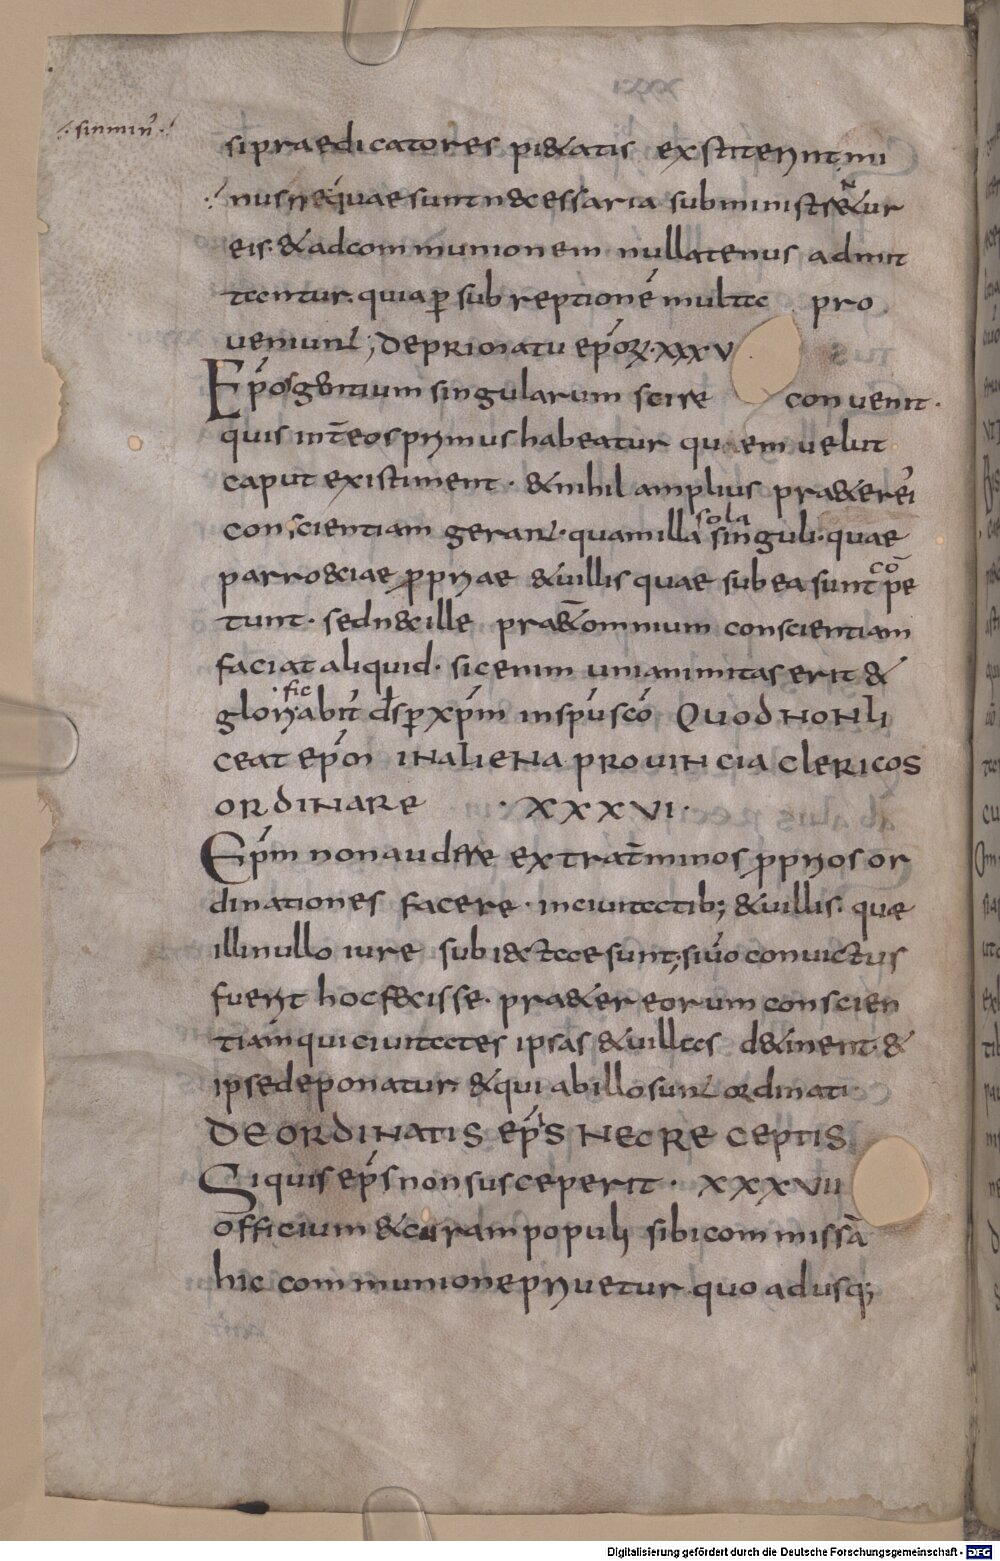 ·sinmin̄·
si praedicatores pi&atis exstiterint, mi
nus n̄ & quae sunt n&cessaria subministr&ur
eis· & ad communionem nullatenus admit
tentur· quia ꝑ subreptionē multa pro
ueniunt; De primatu epōꝝ· XXXV
Epōs gentium singularum scire conuenit·
quis int̄ eos primus habeatur quem uelut
caput existiment· & nihil amplius pra&er ei
conscientiam gerant· quam illa
sola
singuli· quae
parrochiae ꝓpriae & uillis quae sub ea sunt cōpe
tunt· sed n&c ille pra& omnium conscientiam
faciat aliquid· sic enim unanimitas erit &
·fic·
gloriabit̄ d̄s ꝑ xp̄m in sp̄u scō Quod non li
ceat epōm in aliena prouincia clericos
ordinare ·XXXVI·
Ep̄m non audere extra t̄minos ꝓprios or
dinationes facere· in ciuitatib; & uillis· quae
illi nullo iure subiectae sunt; si uō conuictus
fuerit hoc fecisse· pra&er eorum conscien
tiam qui ciuitates ipsas & uillas d&inent· &
ipse deponatur & qui ab illo sunt ordinati·
DE ORDINATIS EPĪS NEC RECEPTIS
Si quis ep̄s non susceperit· XXXVII
officium & curam populi sibi commissā
hic communione priuetur quo adusq;
Digitalisierung gefördert durch die Deutsche Forschungsgemeinschaft - DFG